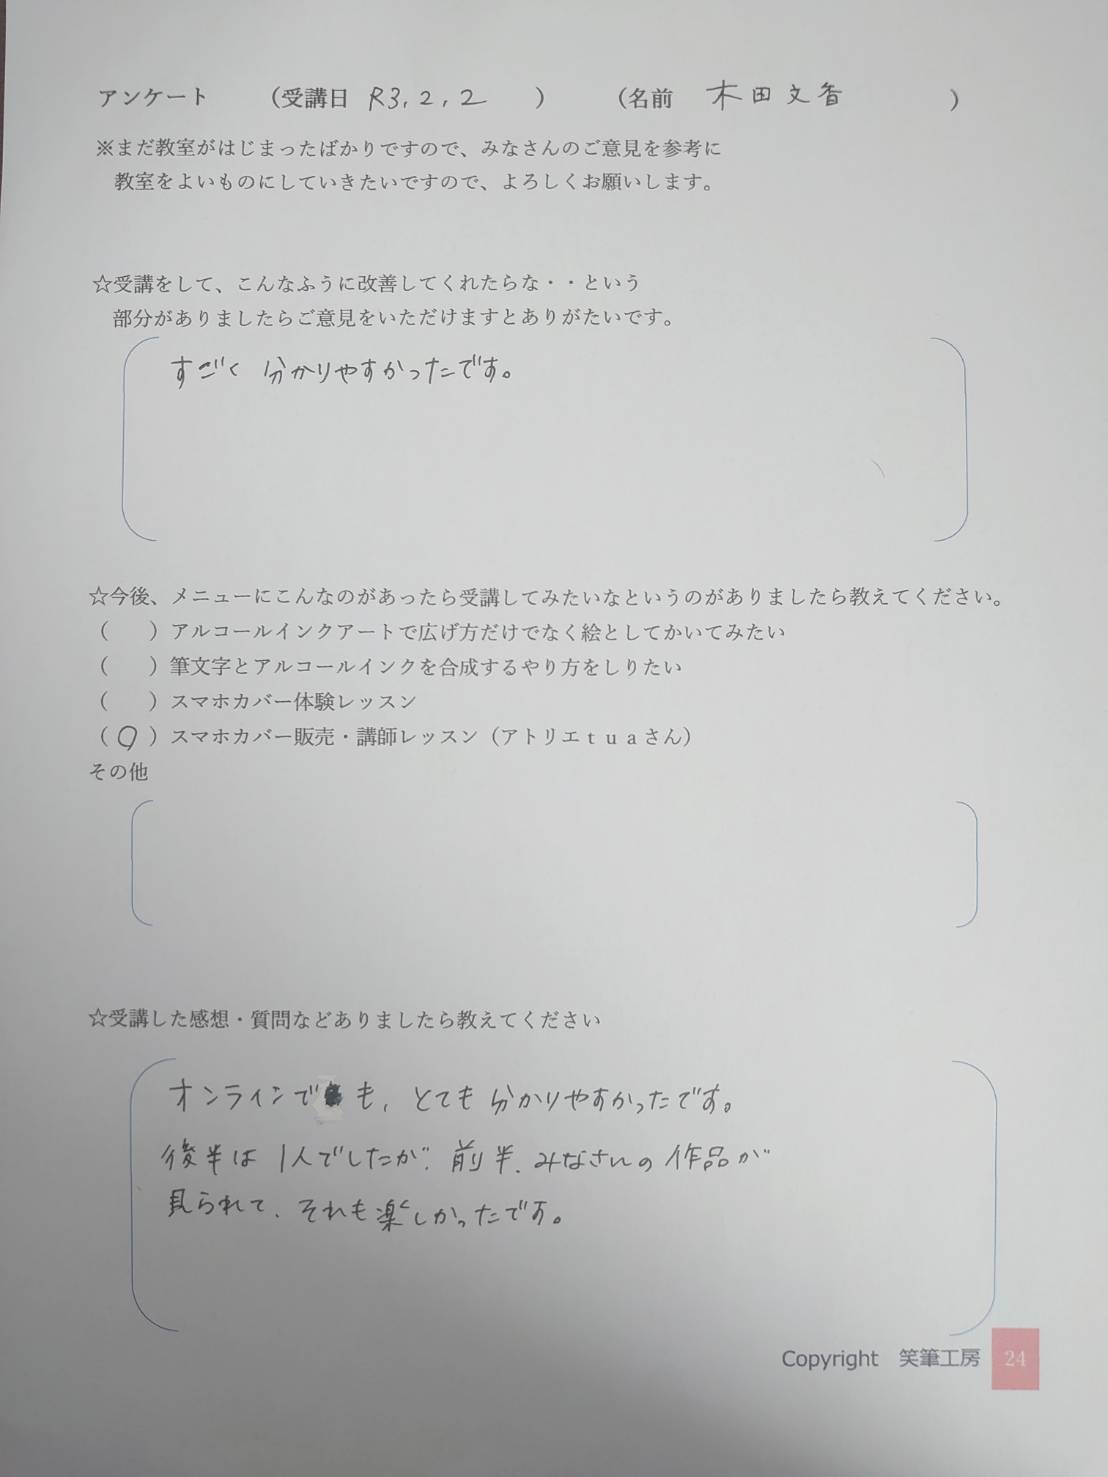 アンケート (受講日 R3,2,2 ) (名前 木田文香 )
※まだ教室がはじまったばかりですので、みなさんのご意見を参考に
教室をよいものにしていきたいですので、よろしくお願いします。
☆受講をして、こんなふうに改善してくれたらな・・という
部分がありましたらご意見をいただけますとありがたいです。
すごく 分かりやすかったです。
☆今後、メニューにこんなのがあったら受講してみたいなというのがありましたら教えてください。
( )アルコールインクアートで広げ方だけでなく絵としてかいてみたい
( )筆文字とアルコールインクを合成するやり方をしりたい
( )スマホカバー体験レッスン
(○)スマホカバー販売・講師レッスン(アトリエtuaさん)
その他
☆受講した感想・質問などありましたら教えてください
オンラインでも、とても分かりやすかったです。
後半は1人でしたが、前半、みなさんの作品が
見られて、それも楽しかったです。
Copyright 笑筆工房 24